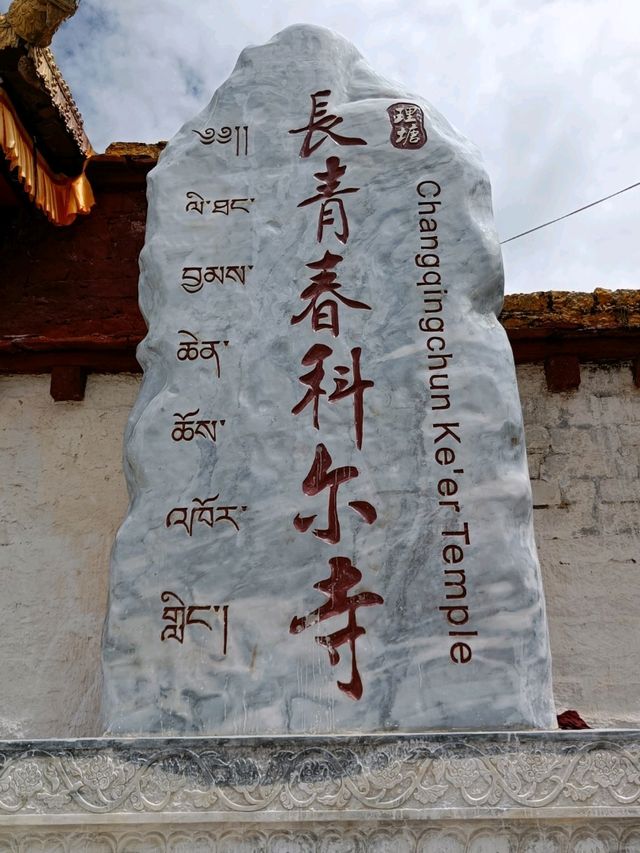 ༄༅།།
ལི་ཐང་
བྱམས་
ཆེན་
ཆོས་
འཁོར་
གླིང་།
長青春科尔寺
理塘
Changqingchun Ke'er Temple